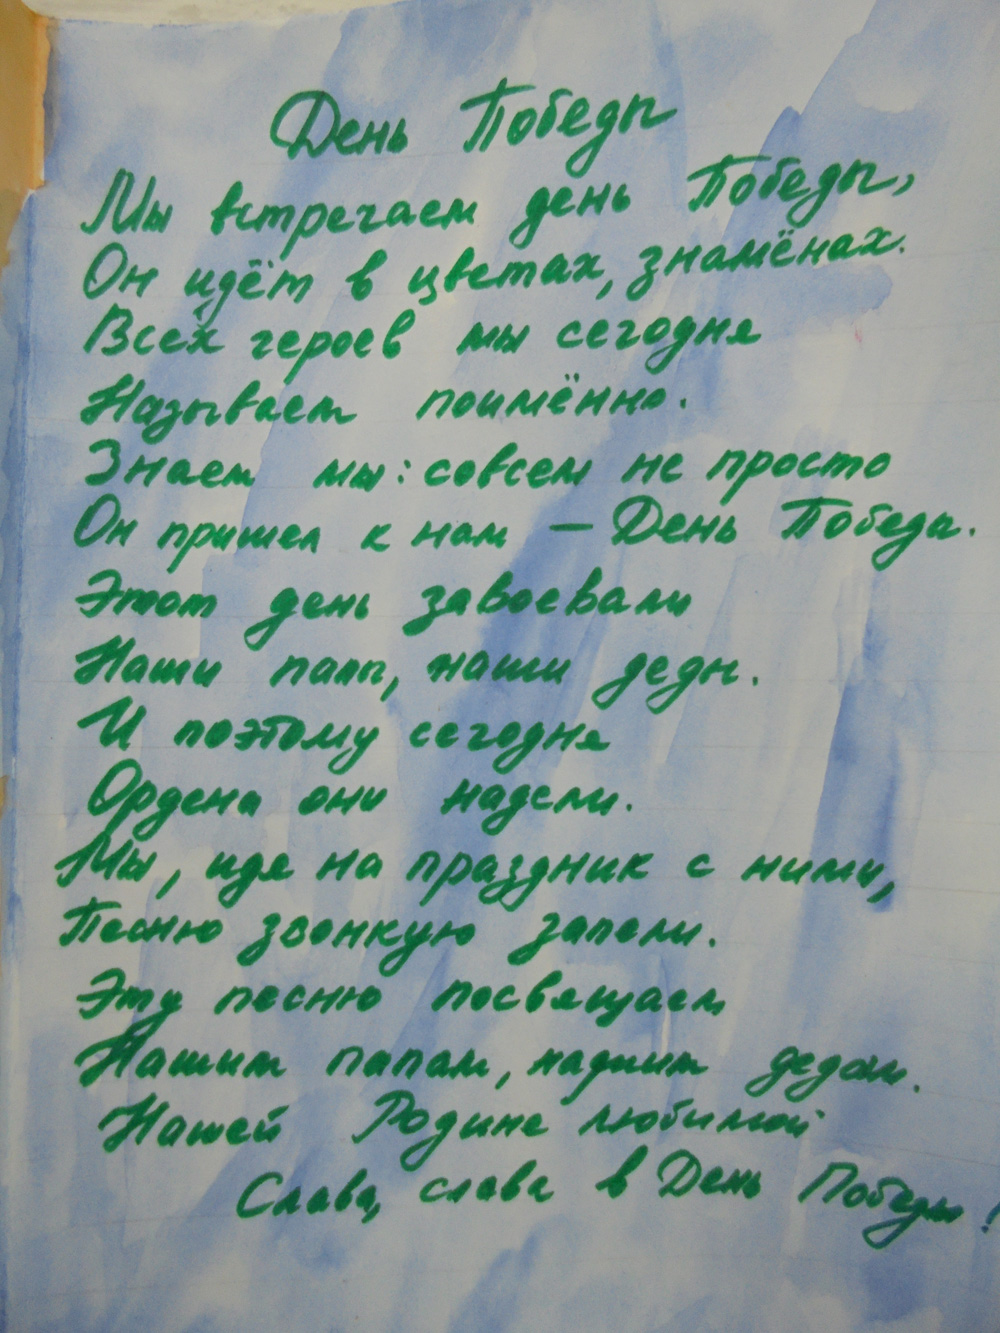 День Победы
Мы встречаем день Победы,
Он идёт в цветах, знамёнах.
Всех героев мы сегодня
Называем поимённо.
Знаем мы: совсем не просто
Он пришел к нам — День Победы.
Этот день завоевали
Наши папы, наши деды.
И поэтому сегодня
Ордена они надели.
Мы, идя на праздник с ними,
Песню звонкую запели.
Эту песню посвящаем
Нашим папам, нашим дедам.
Нашей Родине любимой
Слава, слава в День Победы!